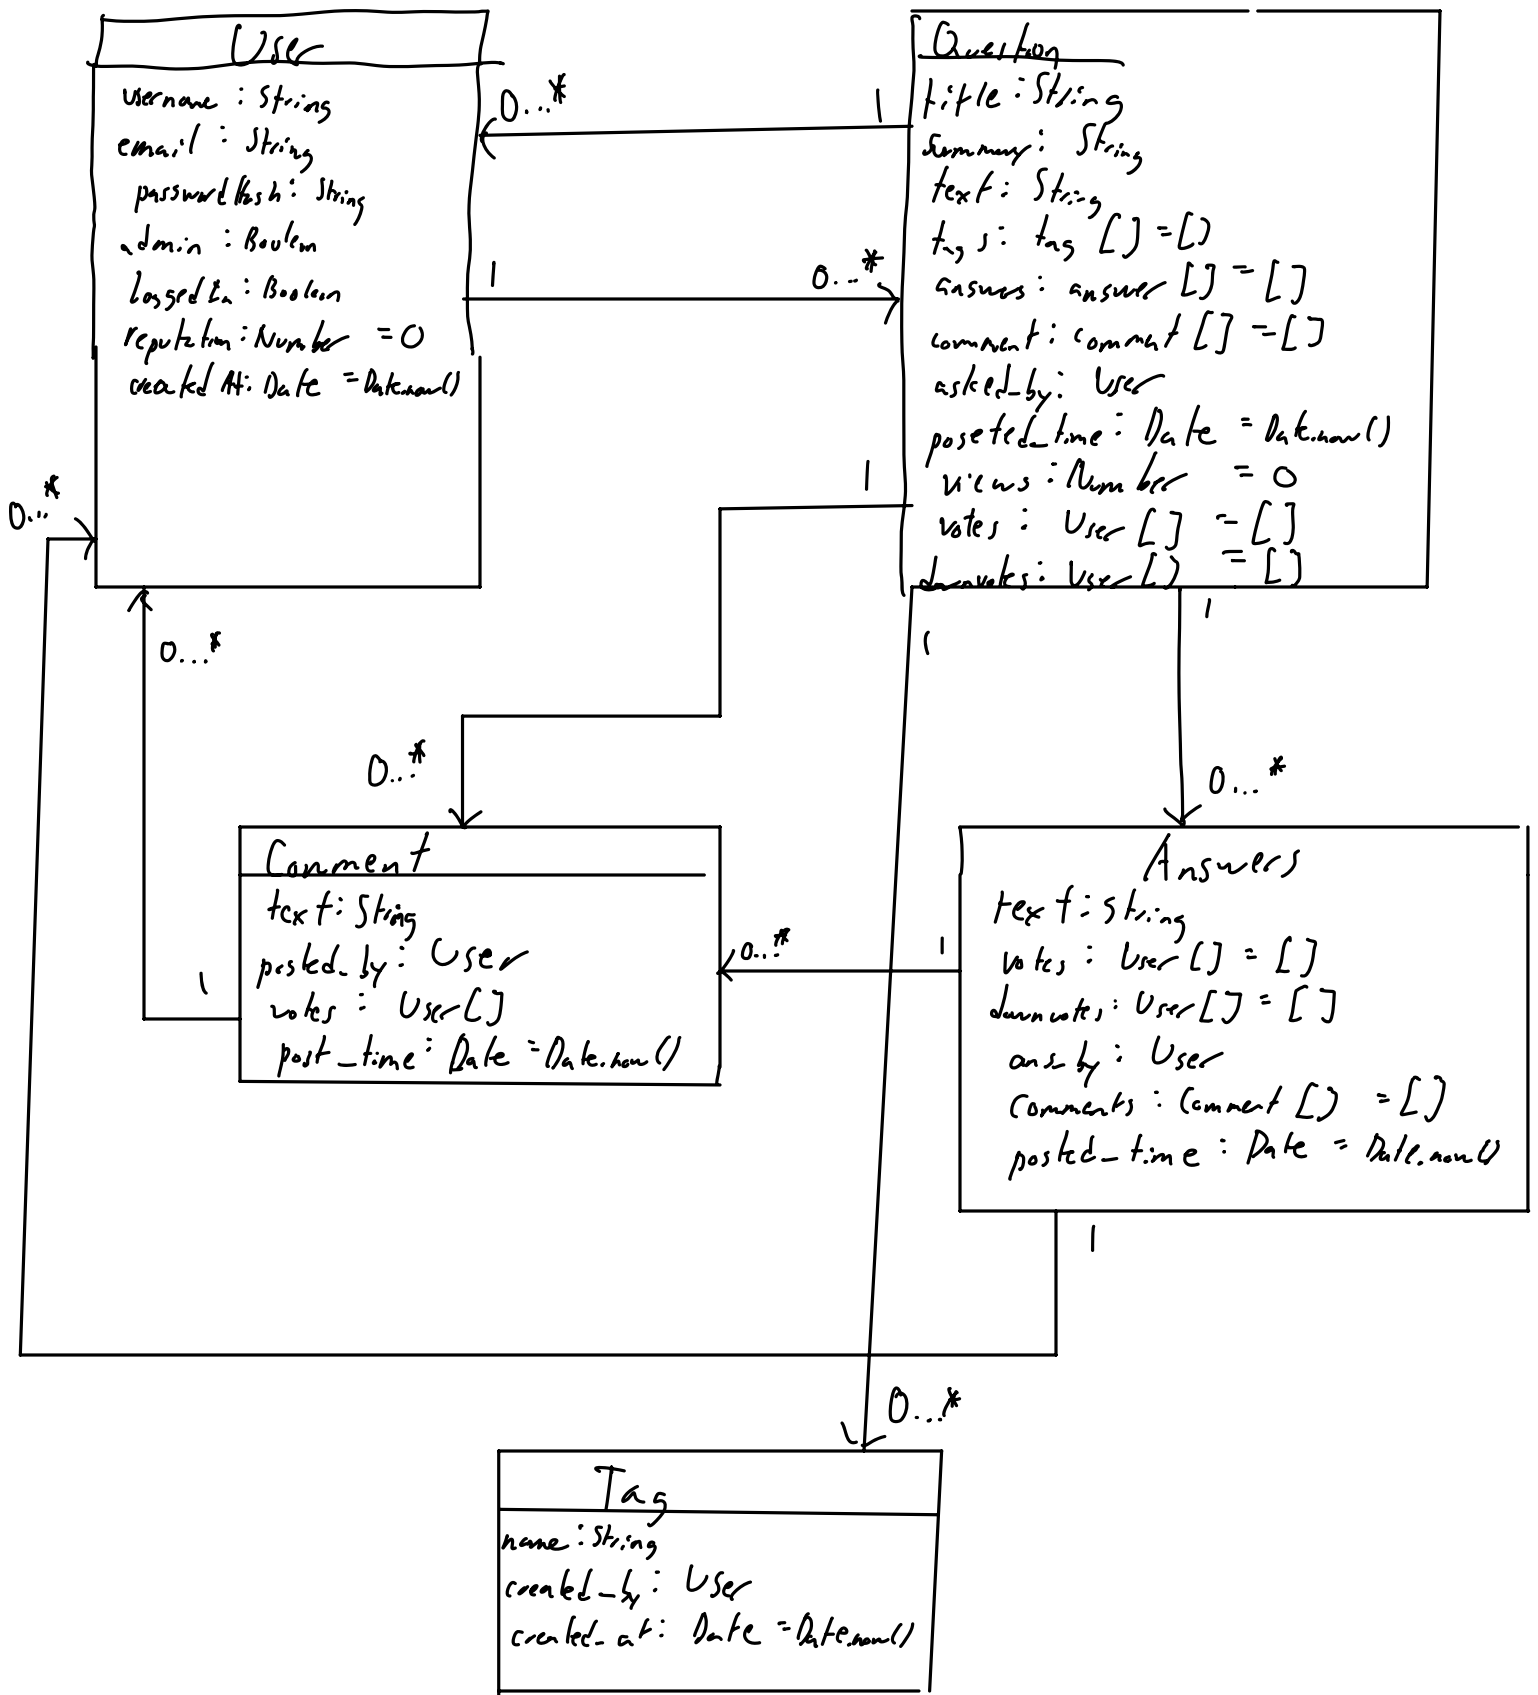 User
username : String
email : String
passwordHash : String
admin : Boolean
loggedIn : Boolean
reputation : Number = 0
createdAt : Date = Date.now()
0...*
1
1
0...*
Question
title : String
summary : String
text : String
tags : tag [] = []
answers : answer [] = []
comment : comment [] = []
asked_by : User
poseted_time : Date = Date.now()
views : Number = 0
votes : User [] = []
downvotes : User [] = []
0...*
1
0...*
1
1
0...*
0...*
Comment
text : String
posted_by : User
votes : User []
post_time : Date = Date.now()
1
0...*
1
Answers
text : string
votes : User [] = []
downvotes : User [] = []
ans_by : User
Comments : Comment [] = []
posted_time : Date = Date.now()
1
0...*
Tag
name : String
created_by : User
created_at : Date = Date.now()